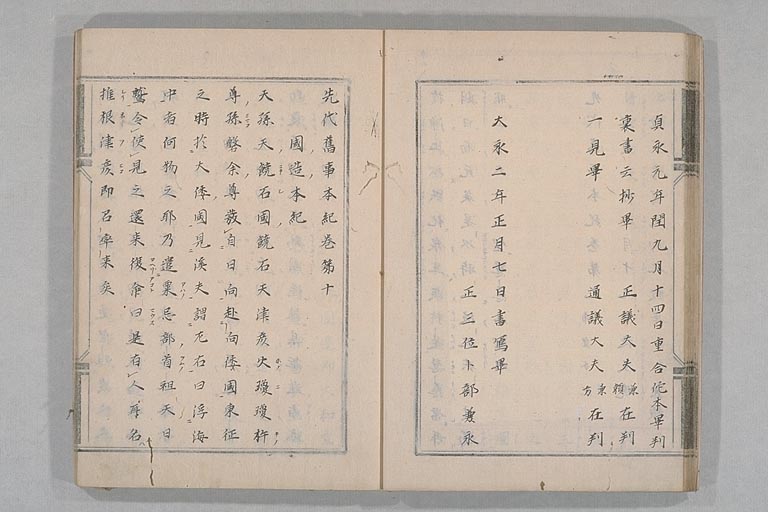 貞永元年閏九月十四日重合他本畢判
裏書云抄畢 正議大夫兼頼在判
一見畢 通議大夫兼方在判
大永二年正月七日書寫畢
正三位卜部兼永
先代舊事本紀卷第十
國造本紀
天孫天饒石國饒石天津彦火瓊瓊杵
尊孫磐余尊發自日向赴向倭國東征
之時於大倭國見溪夫謂左右曰浮海
中者何物之耶乃遣粟忌部首祖天日
鷲命使見之還來復命曰是有人耳名
推根津彦即召率來矣